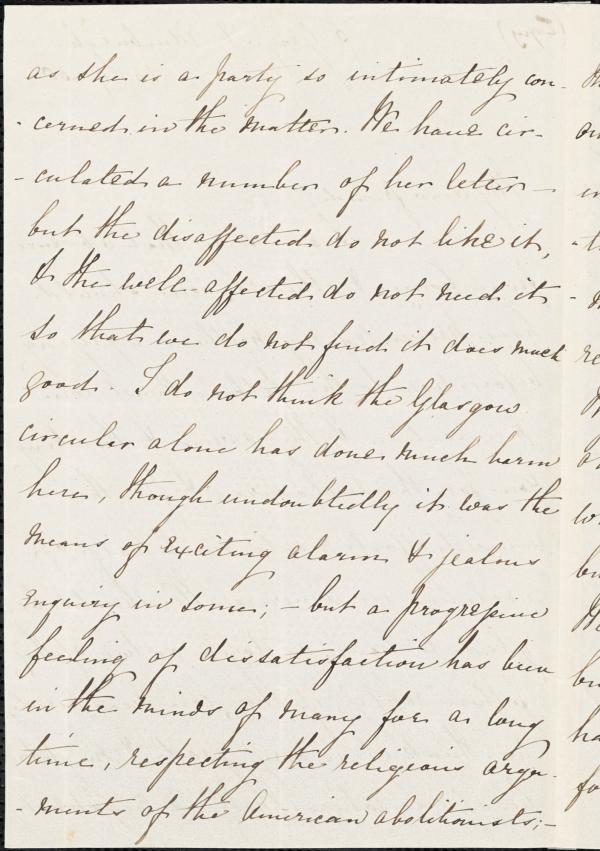 as she is a party so intimately con-
-cerned in the matter. We have cir-
-culated a number of her letter —
but the disaffected do not like it,
& the well-affected do not need it
so that we do not find it does much
good. I do not think the Glasgow
circular alone has done much harm
here, though undoubtedly it was the
means of exciting alarm & jealous
enquiry in some; - but a progressive
feeling of dissatisfaction has been
in the minds of many for a long
time, respecting the religious argu-
-ments of the American abolitionists; -